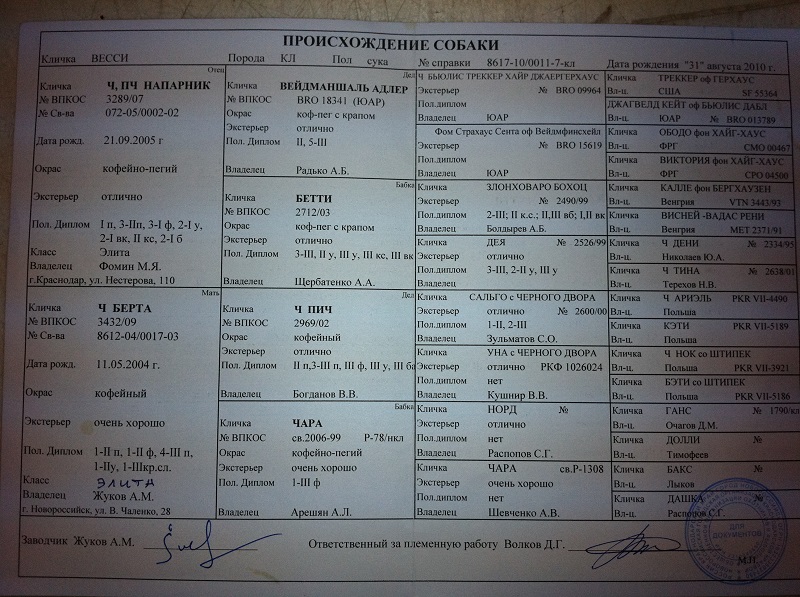 ПРОИСХОЖДЕНИЕ СОБАКИ
Кличка ВЕССИ Порода КЛ Пол сука № справки 8617-10/0011-7-кл Дата рождения "31" августа 2010 г.
Отец
Кличка Ч, ПЧ НАПАРНИК
№ ВПКОС 3289/07
№ Св-ва 072-05/0002-02
Дата рожд. 21.09.2005 г
Окрас кофейно-пегий
Экстерьер отлично
Пол. Диплом I п, 3-IIп, 3-I ф, 2-I у,
2-I вк, II кс, 2-I б
Класс Элита
Владелец Фомин М.Я.
г.Краснодар, ул. Нестерова, 110
Мать
Кличка Ч БЕРТА
№ ВПКОС 3432/09
№ Св-ва 8612-04/0017-03
Дата рожд. 11.05.2004 г.
Окрас кофейный
Экстерьер очень хорошо
Пол. Диплом 1-II п, 1-II ф, 4-III п,
1-IIу, 1-IIIкр.сл.
Класс ЭЛИТА
Владелец Жуков А.М.
г. Новороссийск, ул. В. Чаленко, 28
Дед
Кличка ВЕЙДМАНШАЛЬ АДЛЕР
№ ВПКОС BRO 18341 (ЮАР)
Окрас коф-пег с крапом
Экстерьер отлично
Пол. Диплом II, 5-III
Владелец Радько А.Б.
Бабка
Кличка БЕТТИ
№ ВПКОС 2712/03
Окрас коф-пег с крапом
Экстерьер отлично
Пол. Диплом 3-III, II у, III у, III кс, III вк
Владелец Щербатенко А.А.
Дед
Кличка Ч ПИЧ
№ ВПКОС 2969/02
Окрас кофейный
Экстерьер отлично
Пол. Диплом II п,3-III п, III ф, III у, III б
Владелец Богданов В.В.
Бабка
Кличка ЧАРА
№ ВПКОС св.2006-99 Р-78/нкл
Окрас кофейно-пегий
Экстерьер очень хорошо
Пол. Диплом 1-III ф
Владелец Арешян А.Л.
Кличка Ч БЬЮЛИС ТРЕККЕР ХАЙР ДЖАЕРГЕРХАУС
Экстерьер № BRO 09964
Пол.диплом
Владелец ЮАР
Фом Страхаус Сента оф Вейдмфинсхейл
Экстерьер № BRO 15619
Пол.диплом
Владелец ЮАР
Кличка ЗЛОНХОВАРО БОХОЦ
Экстерьер № 2490/99
Пол.диплом 2-III; II к.с.; II,III вб; I,II вк
Владелец Болдырев А.Б.
Кличка ДЕЯ № 2526/99
Экстерьер отлично
Пол.диплом 3-III, 2-II у, III у
Владелец
Кличка САЛЬГО с ЧЕРНОГО ДВОРА
Экстерьер отлично № 2600/00
Пол.диплом 1-II, 2-III
Владелец Зульматов С.О.
Кличка УНА с ЧЕРНОГО ДВОРА
Экстерьер отлично РКФ 1026024
Пол.диплом нет
Владелец Кушнир В.В.
Кличка НОРД №
Экстерьер отлично
Пол.диплом нет
Владелец Распопов С.Г.
Кличка ЧАРА св.Р-1308
Экстерьер очень хорошо
Пол.диплом нет
Владелец Шевченко А.В.
Кличка ТРЕККЕР оф ГЕРХАУС
Вл-ц. США SF 55364
ДЖАГВЕЛД КЕЙТ оф БЬЮЛИС ДАБЛ
Вл-ц. ЮАР № BRO 013789
Кличка ОБОДО фон ХАЙГ-ХАУС
Вл-ц. ФРГ СМО 00467
Кличка ВИКТОРИЯ фон ХАЙГ-ХАУС
Вл-ц. ФРГ СРО 04500
Кличка КАЛЛЕ фон БЕРГХАУЗЕН
Вл-ц. Венгрия VTN 3443/93
Кличка ВИСНЕЙ -ВАДАС РЕНИ
Вл-ц. Венгрия MET 2371/91
Кличка Ч ДЕНИ № 2334/95
Вл-ц. Николаев Ю.А.
Кличка Ч ТИНА № 2638/01
Вл-ц. Терехов Н.В.
Кличка Ч АРИЭЛЬ PKR VII-4490
Вл-ц. Польша
Кличка КЭТИ PKR VII-5189
Вл-ц. Польша
Кличка Ч НОК со ШТИПЕК
Вл-ц. Польша PKR VII-3921
Кличка БЭТИ со ШТИПЕК
Вл-ц. Польша PKR VII-5186
Кличка ГАНС № 1790/кл
Вл-ц. Очагов Д.М.
Кличка ДОЛЛИ №
Вл-ц. Тимофеев
Кличка БАКС №
Вл-ц. Лыков
Кличка ДАШКА №
Вл-ц. Распопов С.Г.
Заводчик Жуков А.М. Ответственный за племенную работу Волков Д.Г.
М.П.
ДЛЯ
ДОКУМЕНТОВ